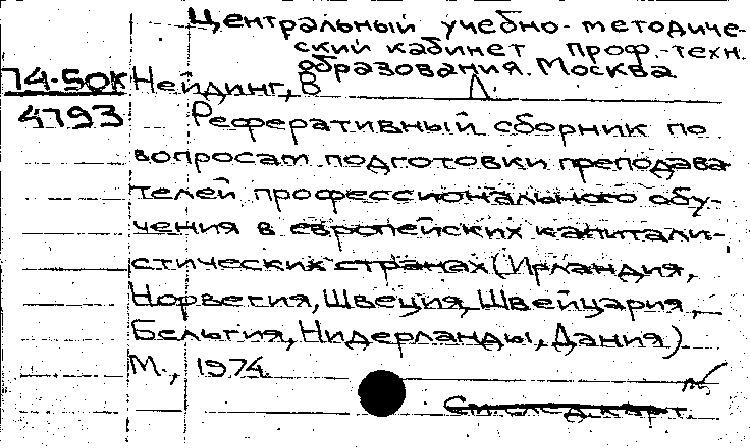 Центральный учебно-методиче-
ский кабинет проф.-техн.
образования. Москва
74-50к Нейдинг, В Л.
4793 Реферативный сборник по
вопросам подготовки преподава
телей профессионального обу-
чения в европейских капитали-
стических странах (Ирландия,
Норвегия, Швеция, Швейцария,
Бельгия, Нидерланды, Дания).
М., 1974
См. след. карт.